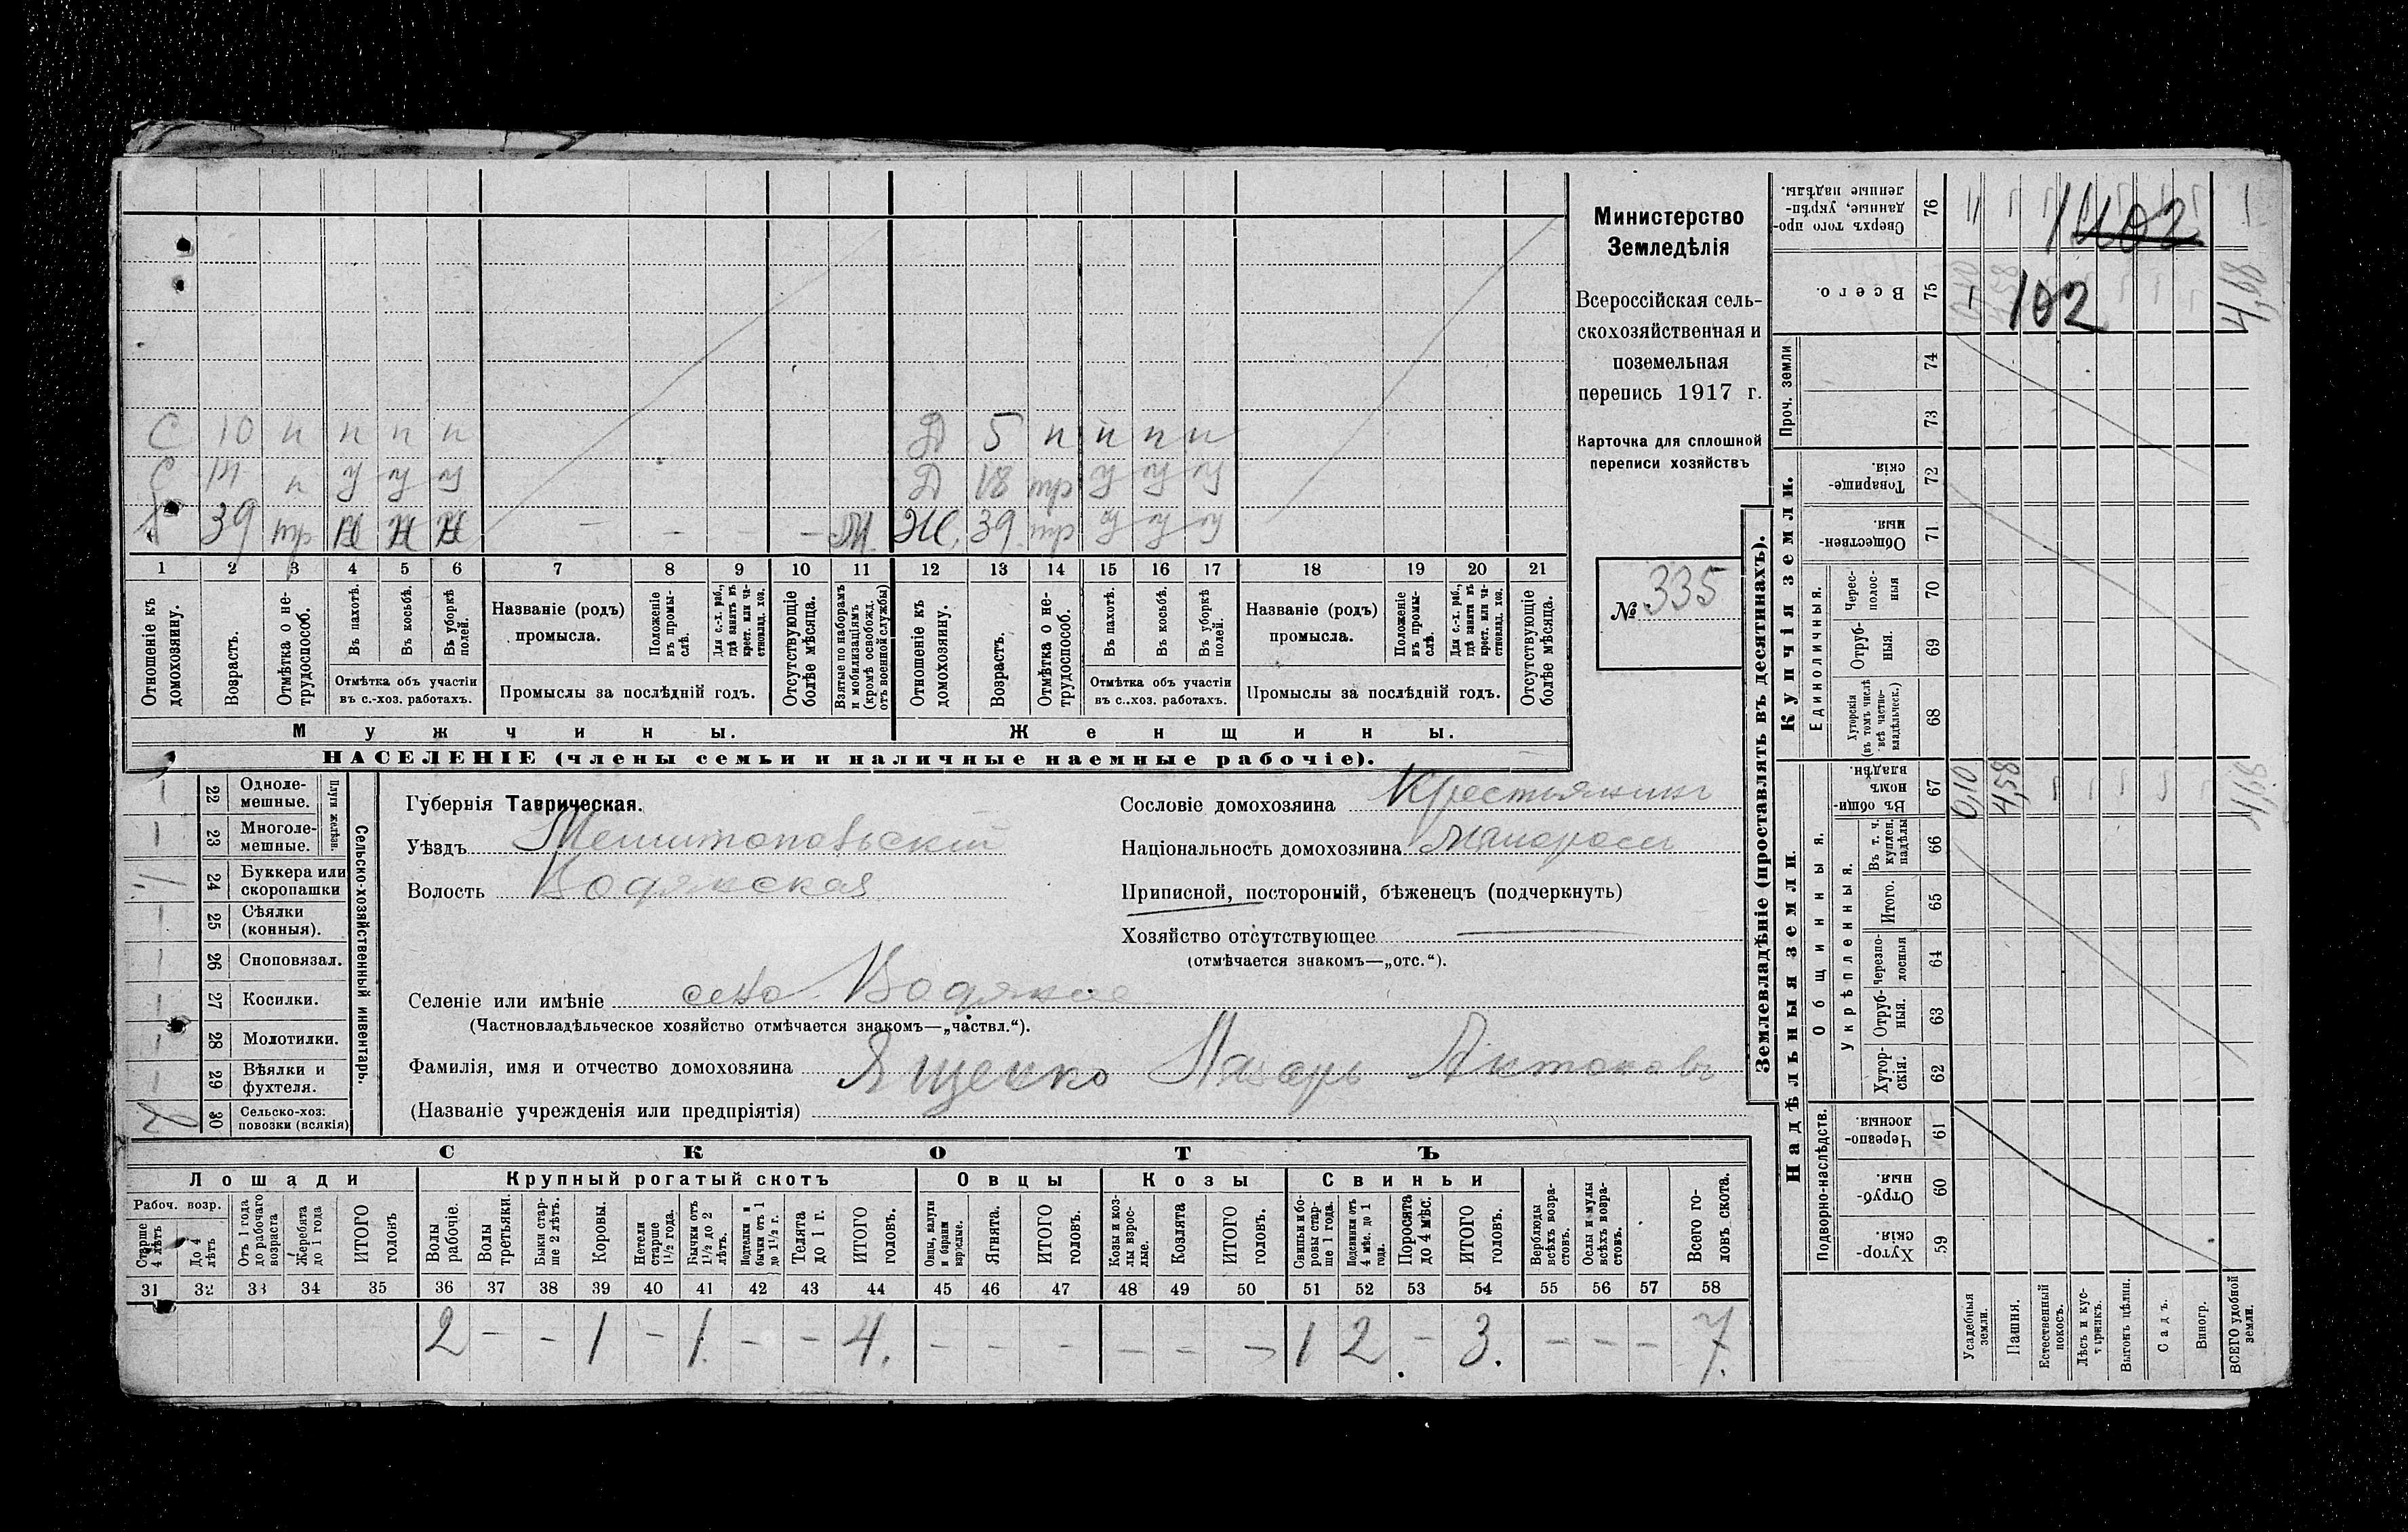 С 10 н н н н Д 5 н н н н
С 14 п у у у Д 18 тр у у у
39 тр Н Н Н — — — — М. Ж. 39 тр у у у
1 2 3 4 5 6 7 8 9 10 11 12 13 14 15 16 17 18 19 20 21
Отношеніе къ домохозяину.
Возрастъ.
Отмѣтка о не-
трудоспособ.
Въ пахотѣ.
Въ косьбѣ.
Въ уборкѣ
полей.
Отмѣтка объ участіи
въ с.-хоз. работахъ.
Названіе (родъ)
промысла.
Положеніе
въ промы-
слѣ.
Для с.-х. раб.,
гдѣ занятъ въ
крест. или ча-
стновлад. хоз.
Промыслы за послѣдній годъ.
Отсутствующіе
болѣе мѣсяца.
Взятые по наборамъ
и мобилизаціямъ
(кромѣ освобожд.
отъ военной службы)
Отношеніе къ
домохозяину.
Возрастъ.
Отмѣтка о не-
трудоспособ.
Въ пахотѣ.
Въ косьбѣ.
Въ уборкѣ
полей.
Отмѣтка объ участіи
въ с..хоз. работахъ.
Названіе (родъ)
промысла.
Положеніе
въ промы-
слѣ.
Для с.-х. раб.,
гдѣ занята въ
крест. или ча-
стновлад. хоз.
Промыслы за послѣдній годъ.
Отсутствующіе
болѣе мѣсяца.
Мужчины.
Женщины.
НАСЕЛЕНІЕ (члены семьи и наличные наемные рабочіе).
Министерство
Земледѣлія
Всероссійская сель-
скохозяйственная и
поземельная
перепись 1917 г.
Карточка для сплошной
переписи хозяйствъ
№ 335
22 Одноле-
мешные.
23 Многоле-
мешные.
Плуги желѣзн.
24 Буккера или
скоропашки
25 Сѣялки
(конныя).
26 Сноповязал.
27 Косилки.
28 Молотилки.
29 Вѣялки и
фухтеля.
30 Сельско-хоз.
повозки (всякія)
Сельско-хозяйственный инвентарь.
Губернія Таврическая.
Уѣздъ Мелитопольскій
Волость Водянская
Сословіе домохозяина Крестьянинъ
Національность домохозяина малороссъ
Приписной, посторонній, бѣженецъ (подчеркнуть)
Хозяйство отсутствующее
(отмѣчается знакомъ—„отс.“).
Селеніе или имѣніе село Водяное
(Частновладѣльческое хозяйство отмѣчается знакомъ—„частвл.“).
Фамилія, имя и отчество домохозяина Ященко Лазарь Антоновъ
(Названіе учрежденія или предпріятія)
СКОТЪ
Лошади
Крупный рогатый скотъ
Овцы
Козы
Свиньи
Рабоч. возр.
Старше
4 лѣтъ
До 4
лѣтъ
Отъ 1 года
до рабочаго
возраста
Жеребята
до 1 года
ИТОГО
головъ
Волы
рабочіе.
Волы
третьяки.
Быки стар-
ше 2 лѣтъ.
Коровы.
Нетели
старше
1½ года.
Бычки отъ
1½ до 2
лѣтъ.
Подтелки и
бычки отъ 1
до 1½ г.
Телята
до 1 г.
ИТОГО
головъ.
Овцы, валухи
и бараны
взрослые.
Ягнята.
ИТОГО
головъ.
Козы и коз-
лы взрос-
лые.
Козлята
ИТОГО
головъ.
Свиньи и бо-
ровы стар-
ше 1 года.
Подсвинки отъ
4 мѣс. до 1
года.
Поросята
до 4 мѣс.
ИТОГО
головъ.
Верблюды
всѣхъ возра-
стовъ.
Ослы и мулы
всѣхъ возра-
стовъ.
Всего го-
ловъ скота.
31 32 33 34 35 36 37 38 39 40 41 42 43 44 45 46 47 48 49 50 51 52 53 54 55 56 57 58
2 — — 1 — 1 — — 4. — — — — — — 1 2 — 3. — — — 7.
Землевладѣніе (проставлять въ десятинахъ).
Сверхъ того про-
данные, укрѣп-
ленные надѣлы.
76
1402
Всего.
75
102
4,68
Проч. земли
74
73
Купчія земли.
Товарище-
скія.
72
Обществен-
ныя.
71
Единоличныя.
Черес-
полос-
ныя
70
Отруб-
ныя.
69
Хуторскія
(въ томъ числѣ
всѣ частно-
владѣльческ.)
68
Надѣльныя земли.
Общинныя.
Въ общин-
номъ
владѣн.
67
0,10
4,58
4,68
Укрѣпленныя.
Въ т. ч.
куплен.
надѣлы
66
Итого.
65
Черезпо-
лосныя
64
Отруб-
ныя.
63
Хутор-
скія.
62
Подворно-наслѣдств.
Черезпо-
лосныя
61
Отруб-
ныя.
60
Хутор-
скія.
59
Усадебныя
земли.
Пашня.
Естественный
покосъ.
Лѣсъ и кус-
тарникъ.
Выгонъ цѣлин.
Садъ.
Виногр.
ВСЕГО удобной
земли.